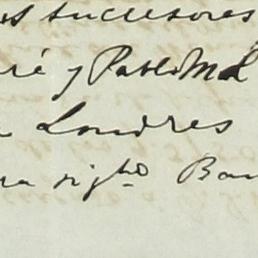 sucesores
ré y Pablo M L
Londres
ra sight Ban